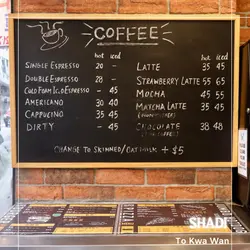 COFFEE
hot iced
SINGLE ESPRESSO 20 -
DOUBLE ESPRESSO 28 -
COLD FOAM ICED ESPRESSO - 45
AMERICANO 30 40
CAPPUCINO 35 45
DIRTY - 45
hot iced
LATTE 35 45
STRAWBERRY LATTE 55 65
MOCHA 45 55
MATCHA LATTE 35 45
CHOCOLATE 38 48
CHANGE TO SKIMMED/OAT MILK + $5
SHADE
To Kwa Wan